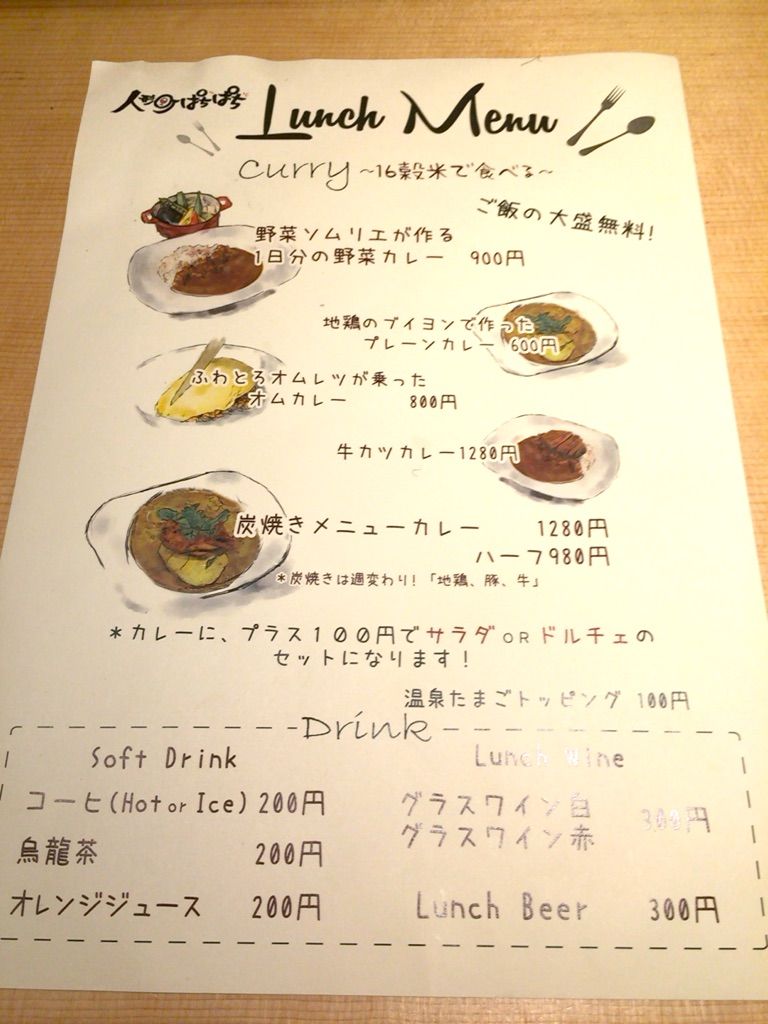 人形町ぱちぱち
Lunch Menu
curry ~16穀米で食べる~
ご飯の大盛無料!
野菜ソムリエが作る
1日分の野菜カレー 900円
地鶏のブイヨンで作った
プレーンカレー 600円
ふわとろオムレツが乗った
オムカレー 800円
牛カツカレー1280円
炭焼きメニューカレー 1280円
ハーフ980円
*炭焼きは週変わり!「地鶏、豚、牛」
*カレーに、プラス100円でサラダORドルチェの
セットになります!
温泉たまごトッピング 100円
Drink
Soft Drink
コーヒ(Hot or Ice) 200円
烏龍茶 200円
オレンジジュース 200円
Lunch Wine
グラスワイン白
グラスワイン赤 300円
Lunch Beer 300円